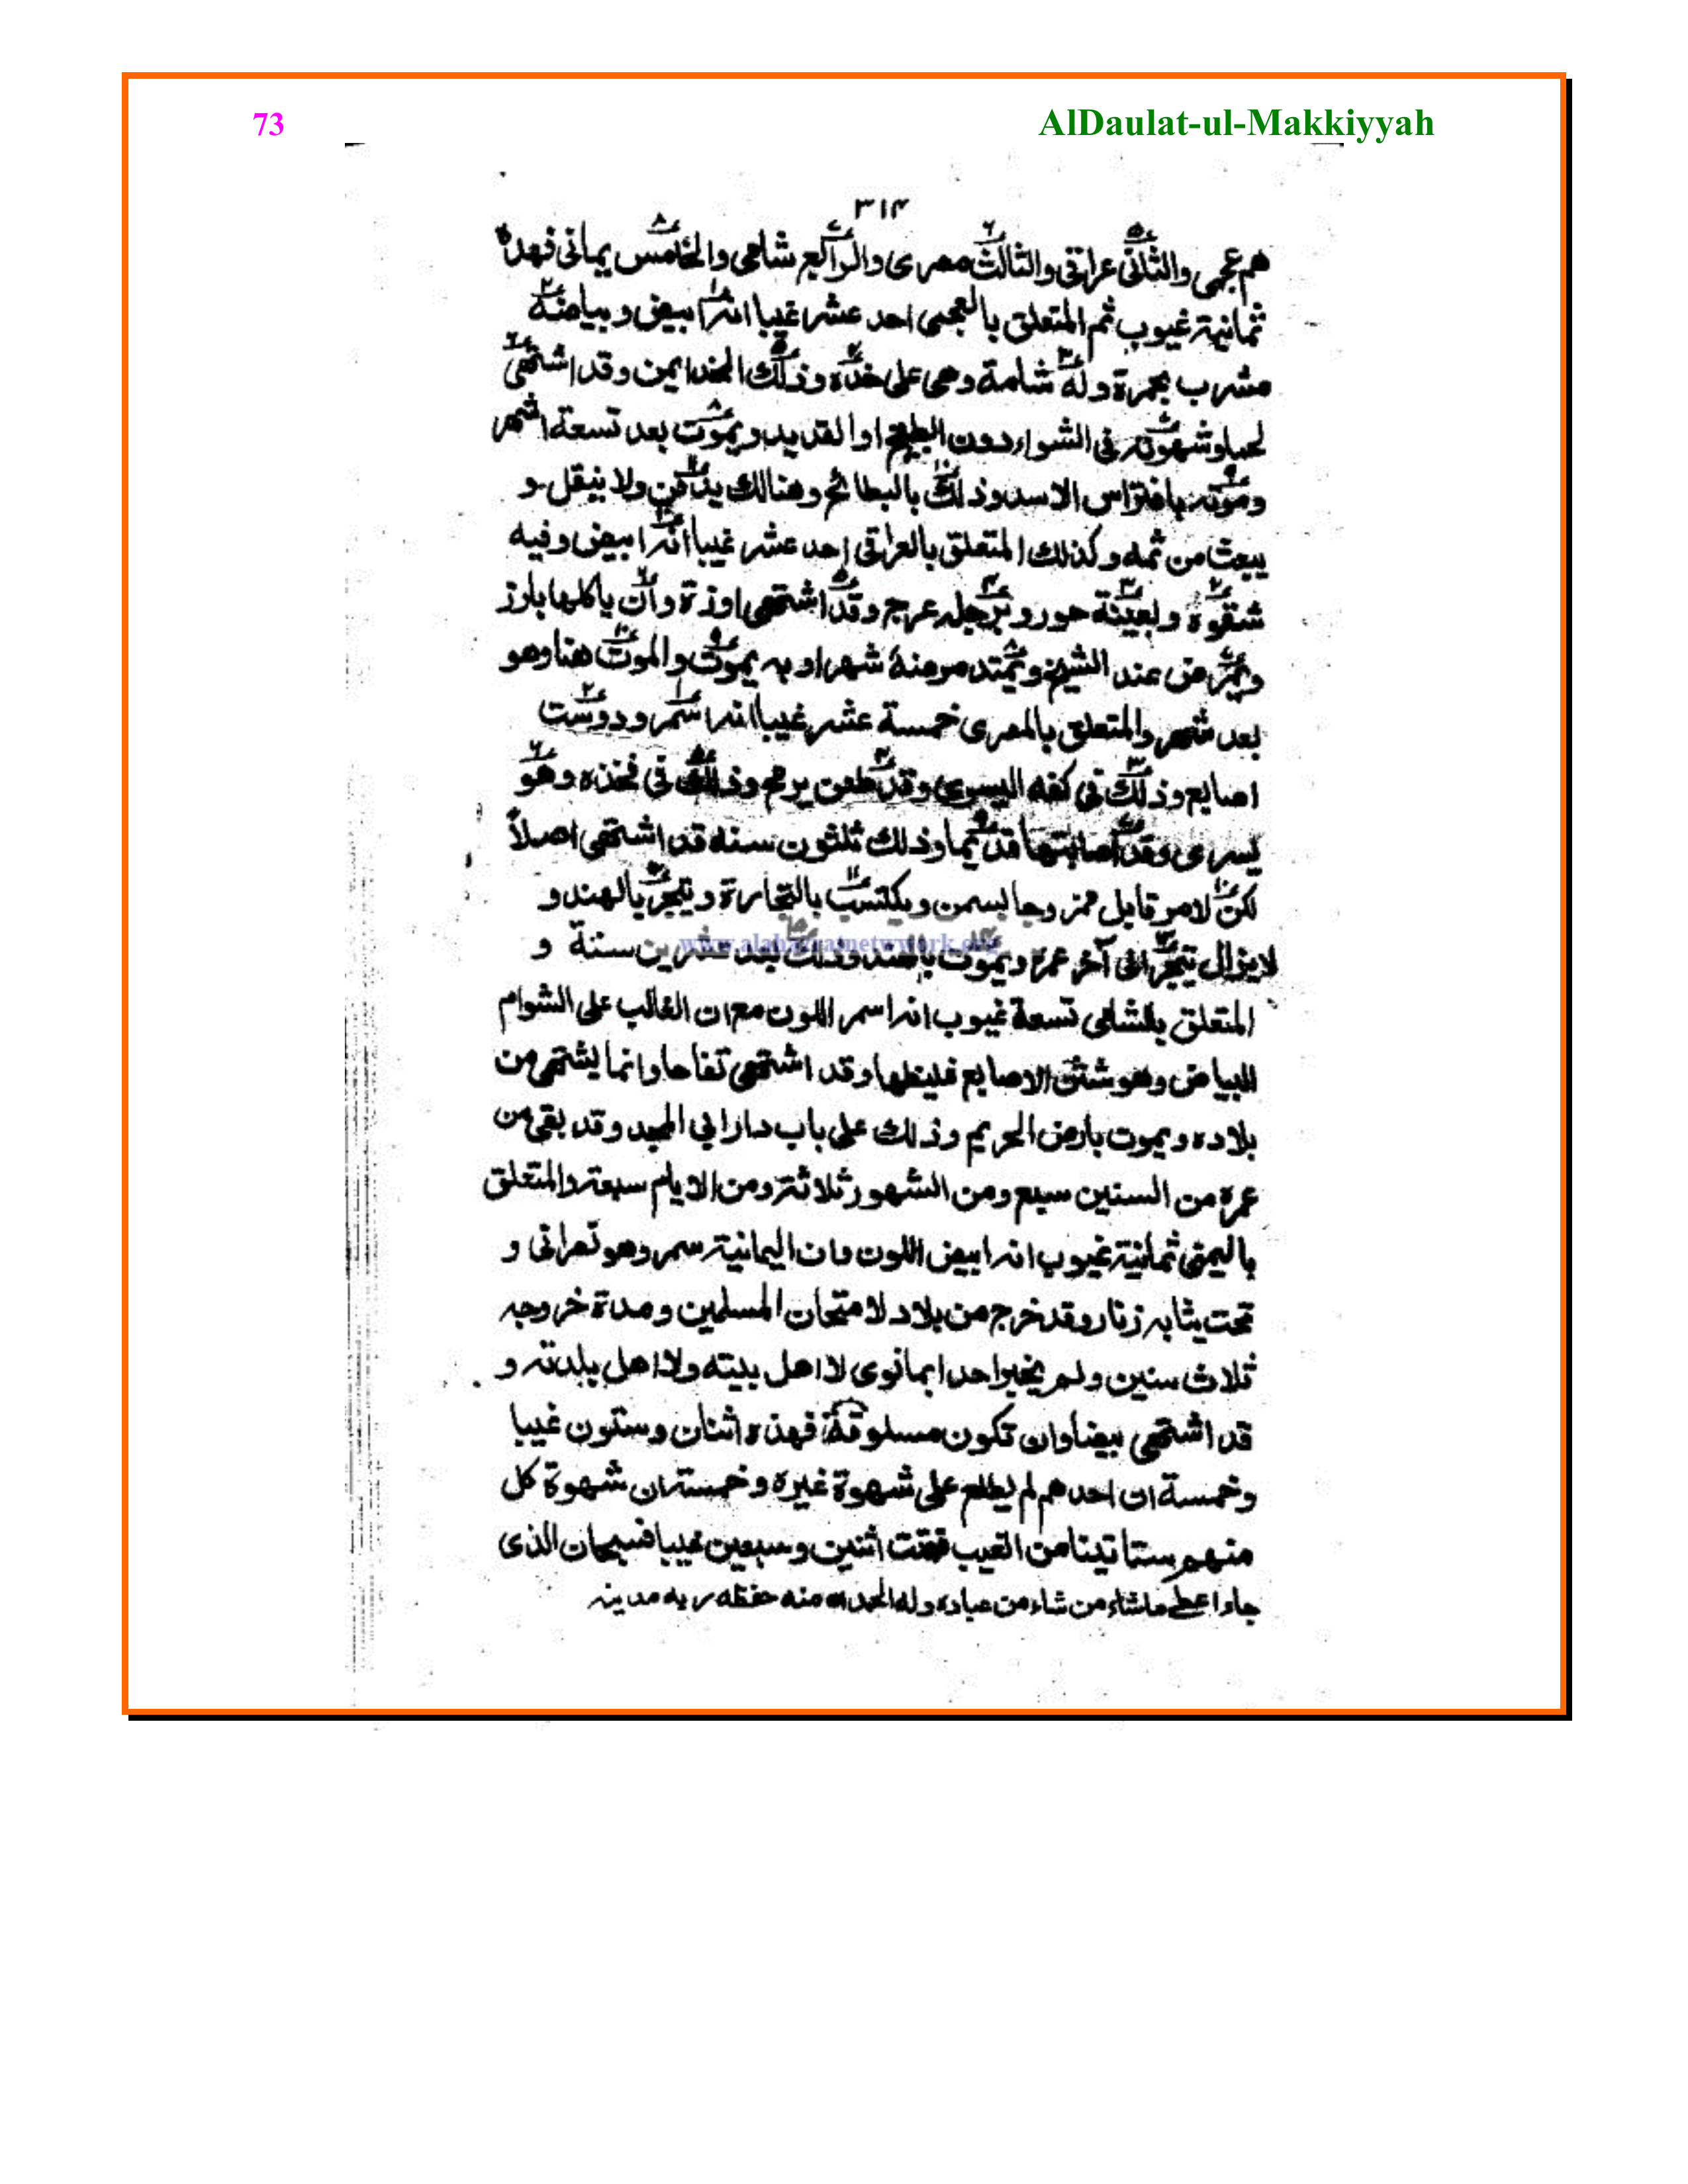 73
AlDaulat-ul-Makkiyyah
٣١٤
هم عجمى والثانى عراقى والثالث مصرى والرابع شامى والخامس يمانى فهذه
ثمانية غيوب ثم المتعلق بالعجمى احد عشر غيبا انه ابيض وبياضه
مشرب بحمرة وله شامة وهى على خده وذلك الخد ايمن وقد اشتهى
لحما وشهوته فى الشواء دون الطبيخ او القديد ويموت بعد تسعة اشهر
وموته بافتراس الاسد وذلك بالبطائح وهنالك يدفن ولا ينقل و
يبعث من ثمه وكذلك المتعلق بالعراقى احد عشر غيبا انه ابيض وفيه
شقرة وبعينة حور وبرجله عرج وقد اشتهى اوزة وان ياكلها بارز
ويمرض عند الشيخ ويمتد مرضه شهرا وبه يموت والموت هنا وهو
بعد شهر والمتعلق بالمصرى خمسة عشر غيبا انه اسمر وذو ست
اصابع وذلك فى كفه اليسرى وقد طعن برمح وذلك فى فخذه وهو
يسرى وقد اصابتها قديما وذلك ثلثون سنه قد اشتهى اصلاً
لكن لامر قابل وجا بسمن ويكتسب بالتجارة ويتجر بالهند و
لا يزال يتجر الى آخر عمره ويموت بالهند وذلك بعد عشرين سنة و
www.alahazratnetwork.org
المتعلق بالشامى تسعة غيوب انه اسمر اللون مع ان الغالب على الشوام
البياض وهو شثن الاصابع غليظها وقد اشتهى تفاحا وانما يشتهى من
بلاده ويموت بارض الحريم وذلك على باب دار ابى المجد وقد بقى من
عمره من السنين سبع ومن الشهور ثلاثة ومن الايام سبعة والمتعلق
باليمنى ثمانية غيوب انه ابيض اللون وان اليمانية سمر وهو نصرانى و
تحت ثيابه زنار وقد خرج من بلاد لامتحان المسلمين ومدة خروجه
ثلاث سنين ولم يخبر احدا بما نوى لا اهل بيته ولا اهل بلدته و
قد اشتهى بيضا وان تكون مسلوقة فهذه اثنان وستون غيبا
وخمسة ان احدهم لم يطلع على شهوة غيره وخمسة ان شهوة كل
منهم ستاتينا من الغيب فتمت اثنين وسبعين غيبا فسبحان الذى
جاد اعطى ماشاء من شاء من عباده وله الحمد اه منه حفظه ربه مدينه